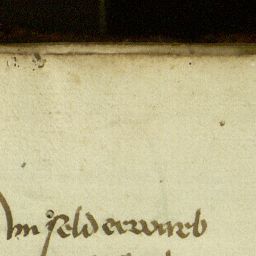 Im seld erwarb